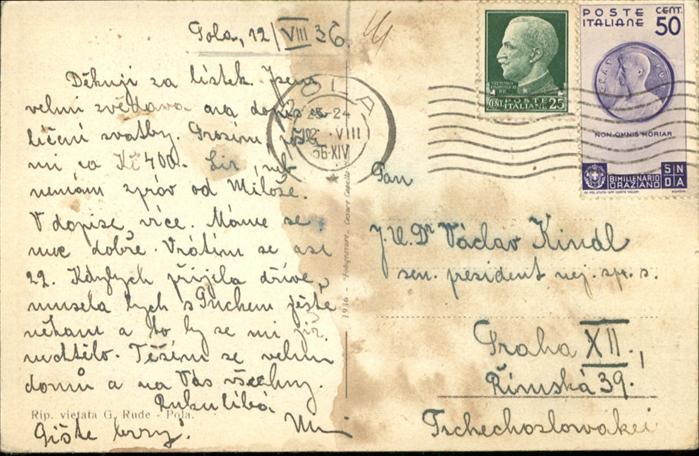 Pola, 12/VIII 36.
Děkuji za lístek. Jsem
velmi zvědava na dopis
líčení svatby. Prosím, pošl
mi ca Kč 400.
nemám zpráv od Miloše.
V dopise více. Máme se
moc dobře. Vrátím se asi
22. Kdybych přijela dříve,
musela bych s Puchem ještě
někam a to by se mi již
nechtělo. Těším se velmi
domů a na Vás všechny.
Rukulíbá
Pište brzy!
Rip. vietata G. Rude - Pola.
1936
POLA
-24
VIII
36-XIV
POSTE ITALIANE
CENT. 25
POSTE ITALIANE
CENT. 50
NON·OMNIS·MORIAR
BIMILLENARIO ORAZIANO
Pan
J.U.Dr Václav Kindl
sen. president nej. sp. s.
Praha XII.,
Římská 39.
Tschechoslowakei